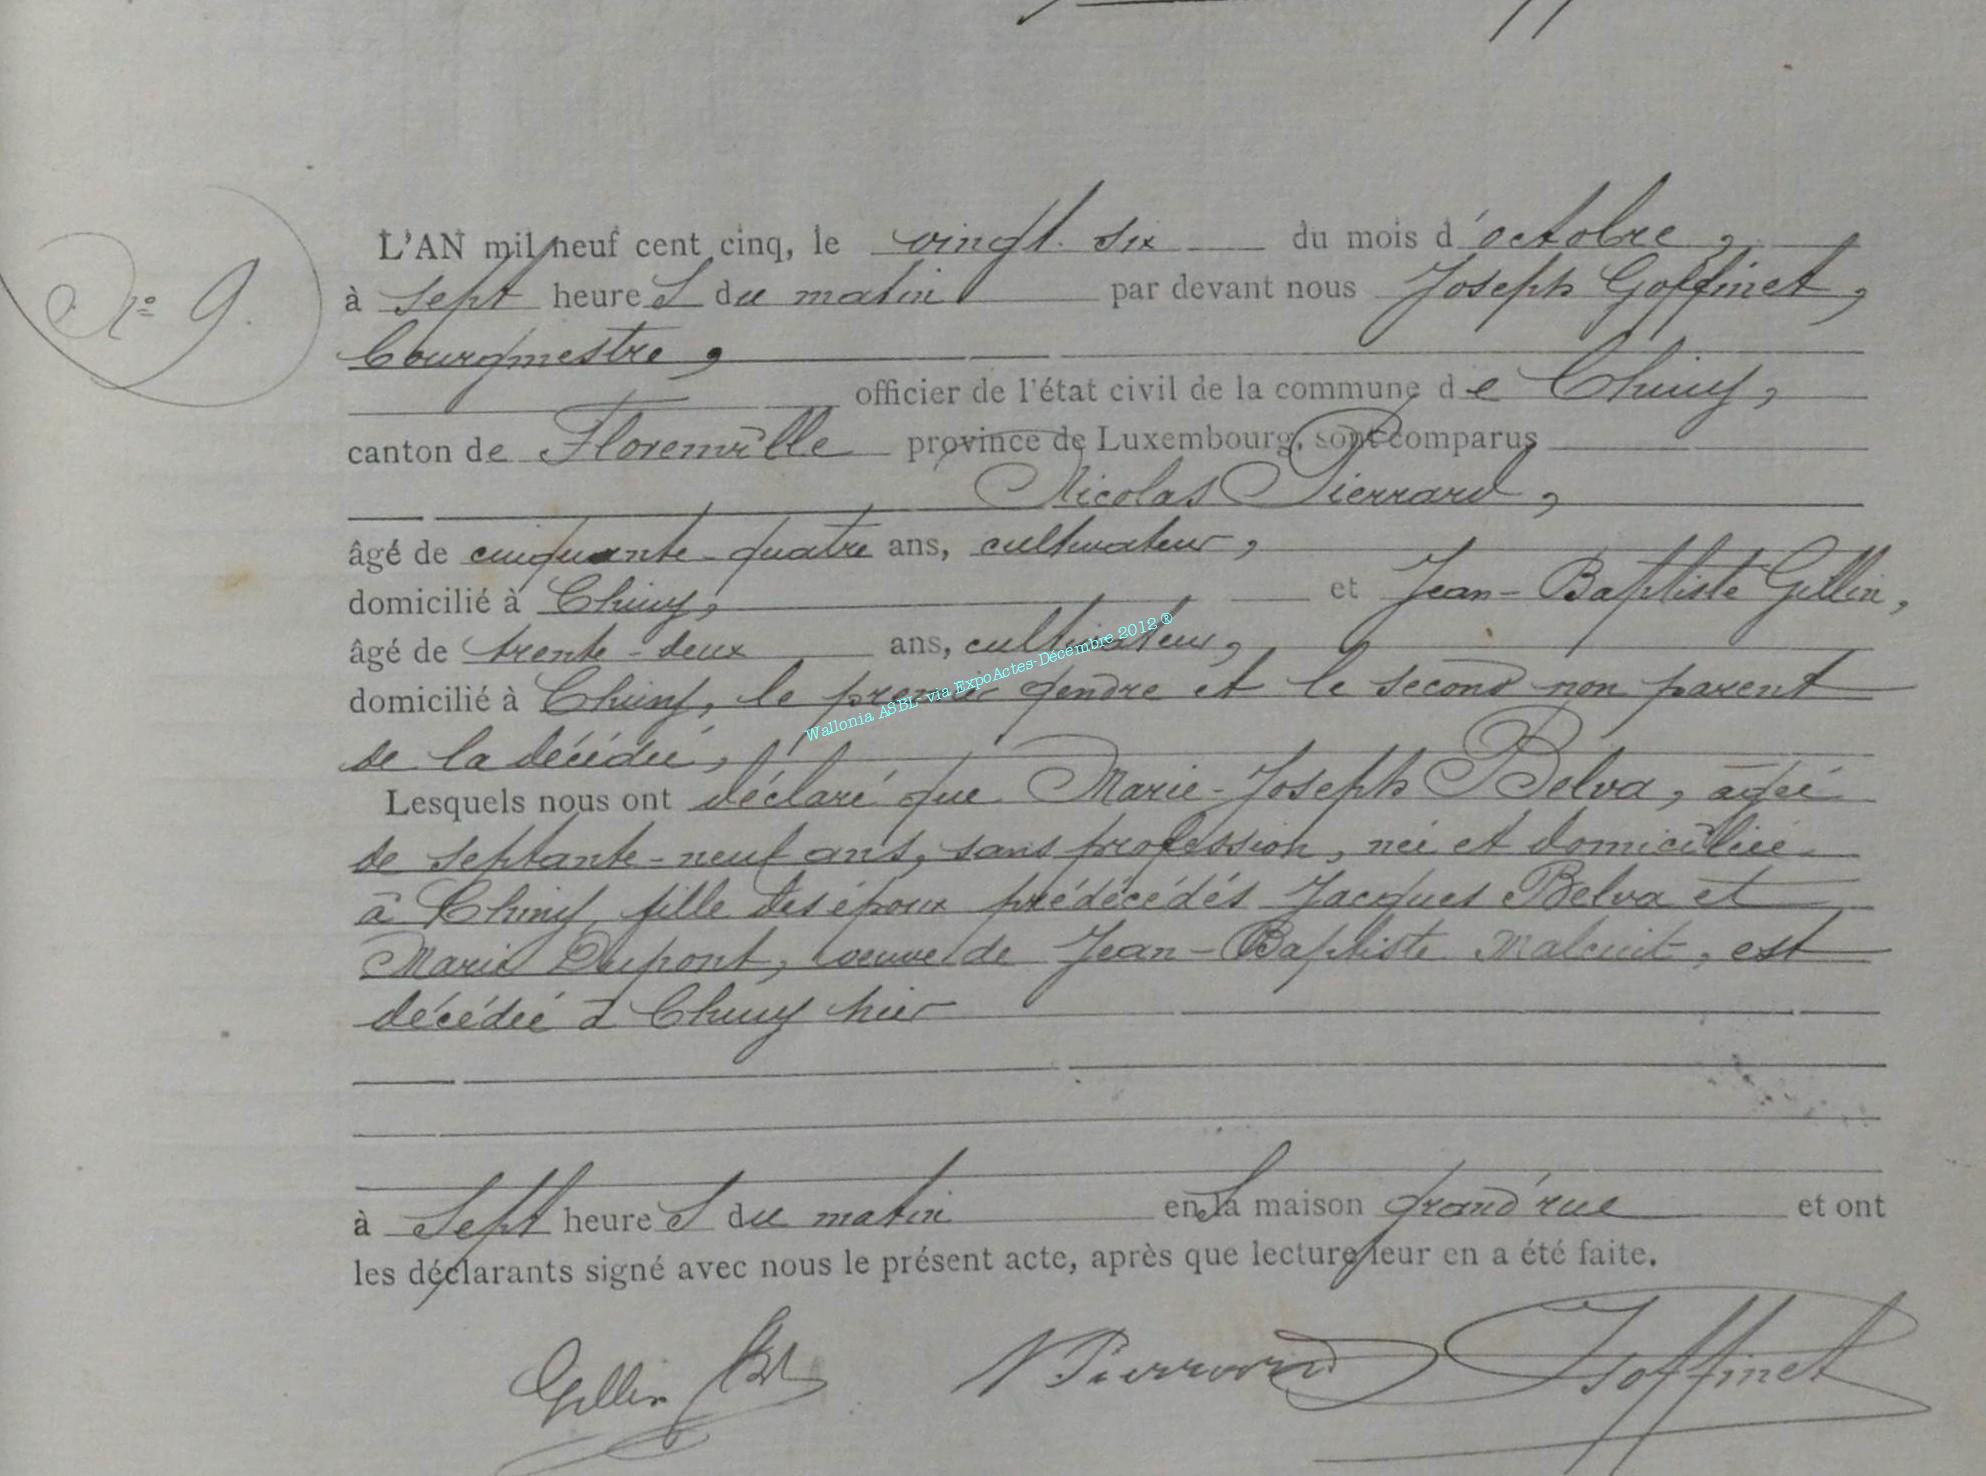 N° 9.
L'AN mil neuf cent cinq, le vingt-six du mois d'octobre,
à sept heures du matin par devant nous Joseph Goffinet,
bourgmestre,
officier de l'état civil de la commune de Chiny,
canton de Florenville province de Luxembourg, sont comparus
Nicolas Pierrard,
âgé de cinquante-quatre ans, cultivateur,
domicilié à Chiny, et Jean-Baptiste Gillin,
âgé de trente-deux ans, cultivateur,
domicilié à Chiny, le premier gendre et le second non parent
de la décédée,
Lesquels nous ont déclaré que Marie-Joseph Belva, âgée
de septante-neuf ans, sans profession, née et domiciliée
à Chiny, fille des époux prédécédés Jacques Belva et
Marie Dupont, veuve de Jean-Baptiste Malcuit, est
décédée à Chiny hier
à sept heures du matin en sa maison grand'rue et ont
les déclarants signé avec nous le présent acte, après que lecture leur en a été faite.
Gillin JBt N Pierrard J Goffinet
Wallonia ASBL- via ExpoActes-Décembre 2012 ®